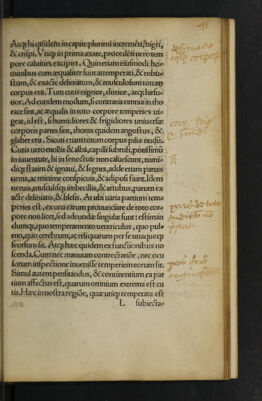 Atq; hi quidem in capite plurimi incrementi, nigri,
& crispi. Vbiq; in prima ætate, procedēti uero tem
pore caluities excipit. Quin etiam eiusmodi ho-
minibus cum æqualiter sunt attemperati, & robu-
stum, & exacte delinitatum, & musculosum totum
corpus erit. Tum cutis nigrior, durior, atq; hirsu-
tior. Ad eundem modum, si contraria omnia in tho
race sint, ac æqualis in toto corpore temperies ui-
geat, id est, si humidiores & frigidiores uniuersæ
corporis partes sint, thorax quidem angustus, &
glaber erit. Sicuti etiam totum corpus pilis nudū.
Cutis uero mollis & alba, capilli subrufi, potissimū
in iuuentute, hi in senectute non caluescunt, timi-
diq; statim & ignaui, & segnes, adde etiam paruis
uenis, ac minime conspicuis, & adiposi sunt. Idem
neruis, musculisq; imbecillis, & artubus, parum ex
acte delinitis, & blæsis. At ubi uaria partium tem-
peries est, ex una earum pronunciare de toto cor-
pore non licet, sed adeundæ singulæ sunt: æstiman
dumq;, quo temperamento uentriculus, quo pul-
mo, quo cerebrum, ac reliquarum per se unaquæq;
seorsum sit. Atq; hæc quidem ex functionibus no
scenda. Cum nec manuum contrectatione, nec ocu
lorum inspectione inuenisse temperiem eorum sit.
Simul autem pensitandus, & continentium ea par
tium affectus est, quarum omnium extrema est cu
tis. Hæc in nostra regione, quæ utiq; temperata est
L subiecta-